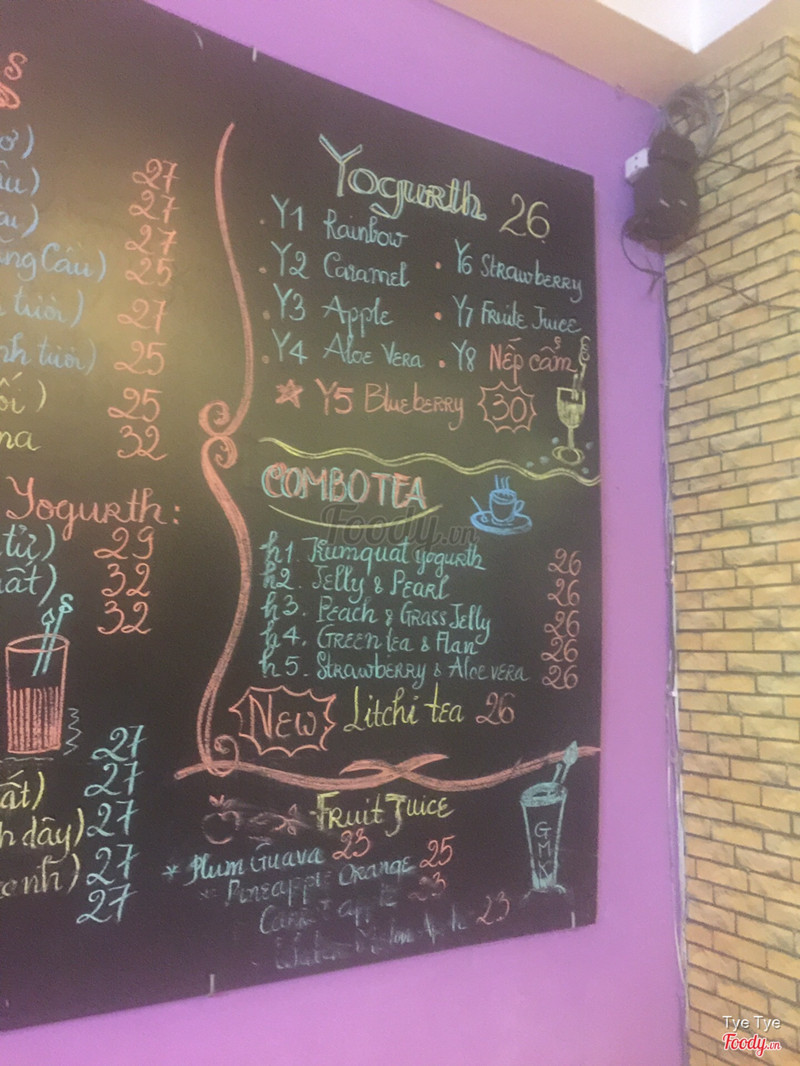 27
27
27
25
27
25
25
32
Yogurth:
29
32
32
27
27
27
27
27
Yogurth 26
Y1 Rainbow
Y2 Caramel
Y3 Apple
Y4 Aloe Vera
Y6 Strawberry
Y7 Fruite Juice
Y8 Nếp cẩm
Y5 Blueberry 30
COMBO TEA
h1. Kumquat yogurth 26
h2. Jelly & Pearl 26
h3. Peach & Grass Jelly 26
h4. Green tea & Flan 26
h5. Strawberry & Aloe vera 26
New Litchi tea 26
Fruit Juice
* Plum Guava 23
* Pineapple Orange 25
apple 23
23
GMK
Foody.vn
Tye Tye
Foody.vn